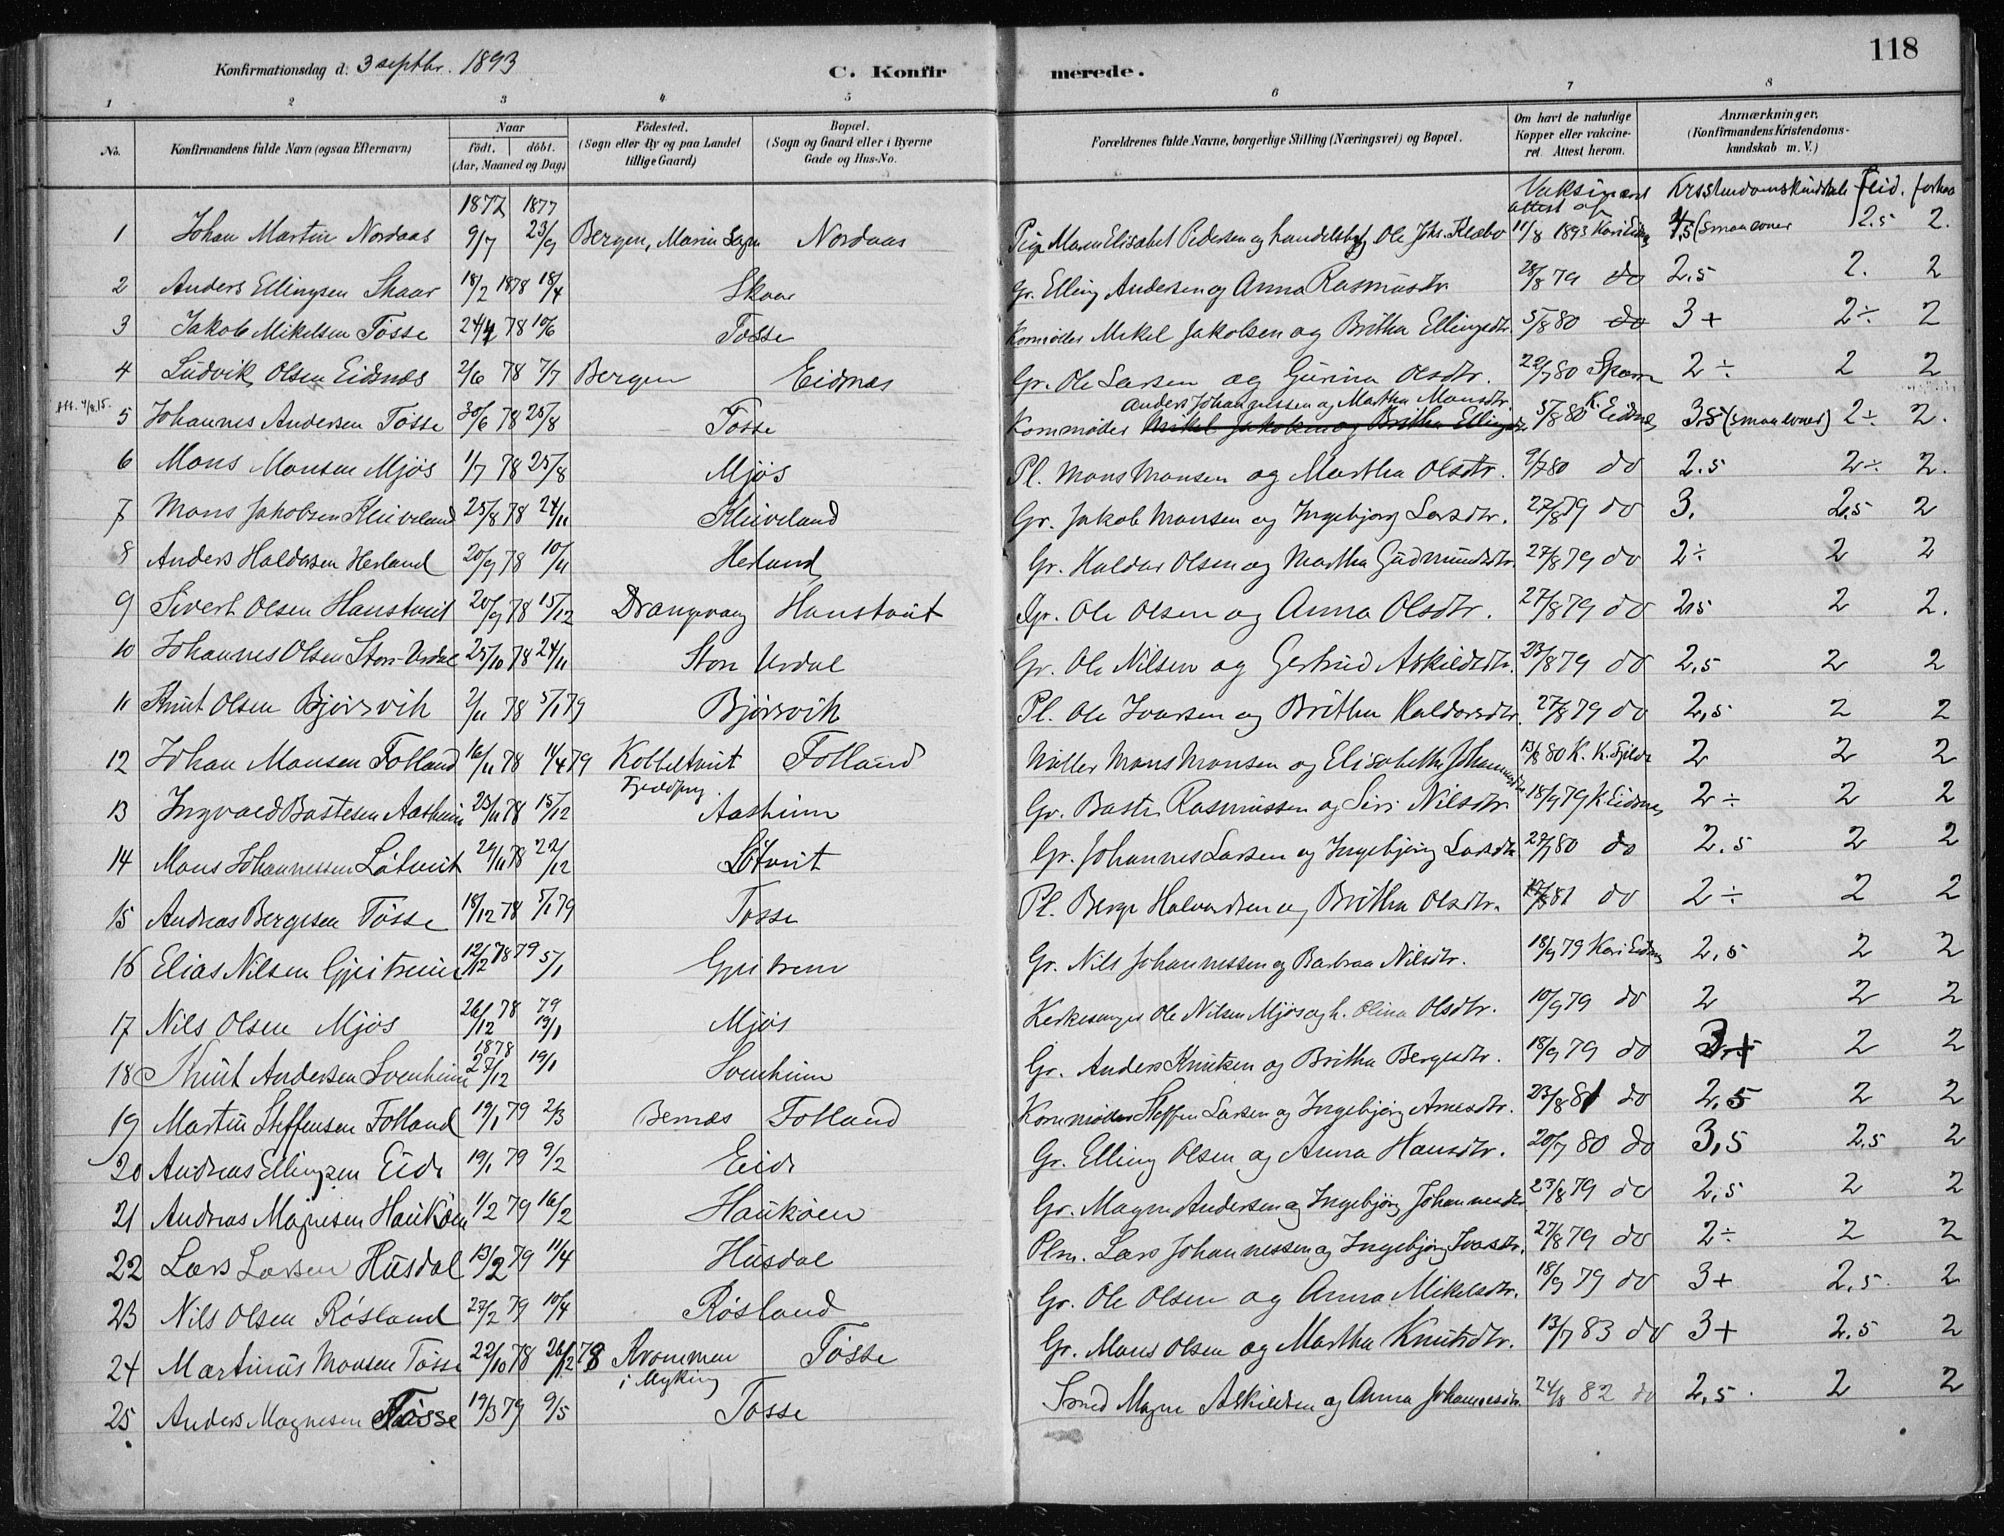 118
Konfirmationsdag d. 3 septbr. 1893
C. Konfirmerede.
1 2 3 4 5 6 7 8
No. Konfirmandens fulde Navn (ogsaa Efternavn) Naar födt. döbt. (Aar, Maaned og Dag) Födested. (Sogn eller By og paa Landet tillige Gaard) Bopæl. (Sogn og Gaard eller i Byerne Gade og Hus-No. Forældrenes fulde Navne, borgerlige Stilling (Næringsvei) og Bopæl. Om havt de naturlige Kopper eller vakcineret. Attest herom. Anmærkninger. (Konfirmandens Kristendomskundskab m. V.)
1877 1877 Vaksineret attest af Kristendomskundskab Flid.
1 Johan Martin Nordaas 9/7 23/9 Bergen, Nordaas Pige Maren Elisabet Pedersen og Ole Johs. 11/8 1893 2.5 2.
2 Anders Ellingsen Skaar 18/2 1878 18/4 Skaar Gr. Elling Andersen og Anna Rasmusdtr. 28/8 79 do 2.5 2. 2
3 Jakob Mikelsen Tösse 24/4 78 10/6 Tösse Kornmöder Mikel Jakobsen og Britha Ellingsdtr. 5/8 80 do 3+ 2÷ 2
4 Ludvik Olsen Eidsnæs 2/6 78 7/7 Bergen Eidnæs Gr. Ole Larsen og Gurina Olsdtr. 22/7 80 2÷ 2 2
5 Johannes Andersen Tösse 30/6 78 25/8 Tösse Kornmöder Mikel Jakobsen og Britha Ellingsdtr. Anders Johannessen og Martha Monsdtr. 5/8 80 K. Eidsnes 3.5 (smaa evner) 2÷ 2.
6 Mons Monsen Mjös 1/7 78 25/8 Mjös Pl. Mons Monsen og Martha Olsdtr. 9/7 80 do 2.5 2÷ 2.
7 Mons Jakobsen Kleiveland 25/8 78 24/11 Kleiveland Gr. Jakob Monsen og Ingebjorg Larsdtr. 27/8 79 do 3. 2.5 2
8 Anders Haldorsen Herland 20/9 78 10/11 Herland Gr. Haldor Olsen og Martha Gudmundsdtr. 27/8 79 do 2÷ 2 2
9 Sivert Olsen Hanstveit 20/9 78 15/12 Drangevaag Hanstveit Gr. Ole Olsen og Anna Olsdtr. 27/8 79 do 2.5 2 2.
10 Johannes Olsen Store-Urdal 25/10 78 24/11 Store Urdal Gr. Ole Nilsen og Gertrud Askildsdtr. 23/8 79 do 2.5 2 2
11 Knut Olsen Bjørsvik 2/11 78 5/1 79 Bjørsvik Pl. Ole Ivarsen og Britha Haldorsdtr. 27/8 79 do 2,5 2 2
12 Johan Monsen Fotland 16/11 78 14/4 79 Kobbeltveit Fotland Möller Mons Monsen og Elisabeth Johannesdtr. 13/8 80 2 2 2
13 Ingvald Bastesen Aasheim 23/11 78 15/12 Aasheim Gr. Baste Rasmussen og Siri Nilsdtr. 18/9 79 K. Eidsnes 2÷ 2 2
14 Mons Johannessen Lötveit 29/11 78 22/12 Lötveit Gr. Johannes Larsen og Ingebjörg Larsdtr. 22/7 80 do 2.5 2 2
15 Andreas Bergesen Tösse 18/12 78 5/1 79 Tösse Pl. Berge Halvordsen og Britha Olsdtr. 81 do 2÷ 2 2
16 Elias Nilsen Gjeitreim 12/12 78 79 5/1 Gjeitreim Gr. Nils Johannessen og Barbraa Nilsdtr. 18/9 79 Kari Eidsnes 2,5 2 2
17 Nils Olsen Mjös 26/12 78 79 19/1 Mjös Kirkesanger Ole Nilsen Mjös og h. Olina Olsdtr. 10/9 79 do 2 2 2
18 Knut Andersen Sveenheim 1878 27/12 19/1 Sveenheim Gr. Anders Knutsen og Britha Bergesdtr. 18/9 79 do 3+ 2 2
19 Martin Steffensen Fotland 19/1 79 2/3 Bernæs Fotland Kornmöder Steffen Larsen og Ingebjörg Arnesdtr. 23/8 81 do 2,5 2 2
20 Andreas Ellingsen Eide 19/1 79 9/2 Eide Gr. Elling Olsen og Anna Hansdtr. 20/7 80 do 3,5 2,5 2
21 Andreas Magnesen Hauköen 1/2 79 16/2 Hauköen Gr. Magne Andersen og Ingebjörg Johannesdtr. 23/8 79 do 2,5 2 2
22 Lars Larsen Husdal 13/2 79 11/4 Husdal Plm. Lars Johannessen og Ingebjörg Ivarsdtr. 27/8 79 do 2÷ 2 2
23 Nils Olsen Røsland 27/2 79 10/4 Røsland Gr. Ole Olsen og Anna Mikelsdtr. 18/9 79 do 3+ 2,5 2
24 Martinus Monsen Tösse 22/10 78 26/12 78 Krommen i Myking Tösse Gr. Mons Olsen og Martha Knutsdtr. 13/7 83 do 3+ 2,5 2
25 Anders Magnesen Tösse 19/3 79 9/5 Tösse Smed Magne Askildsen og Anna Johannesdtr. 24/8 82 do 2,5. 2 2